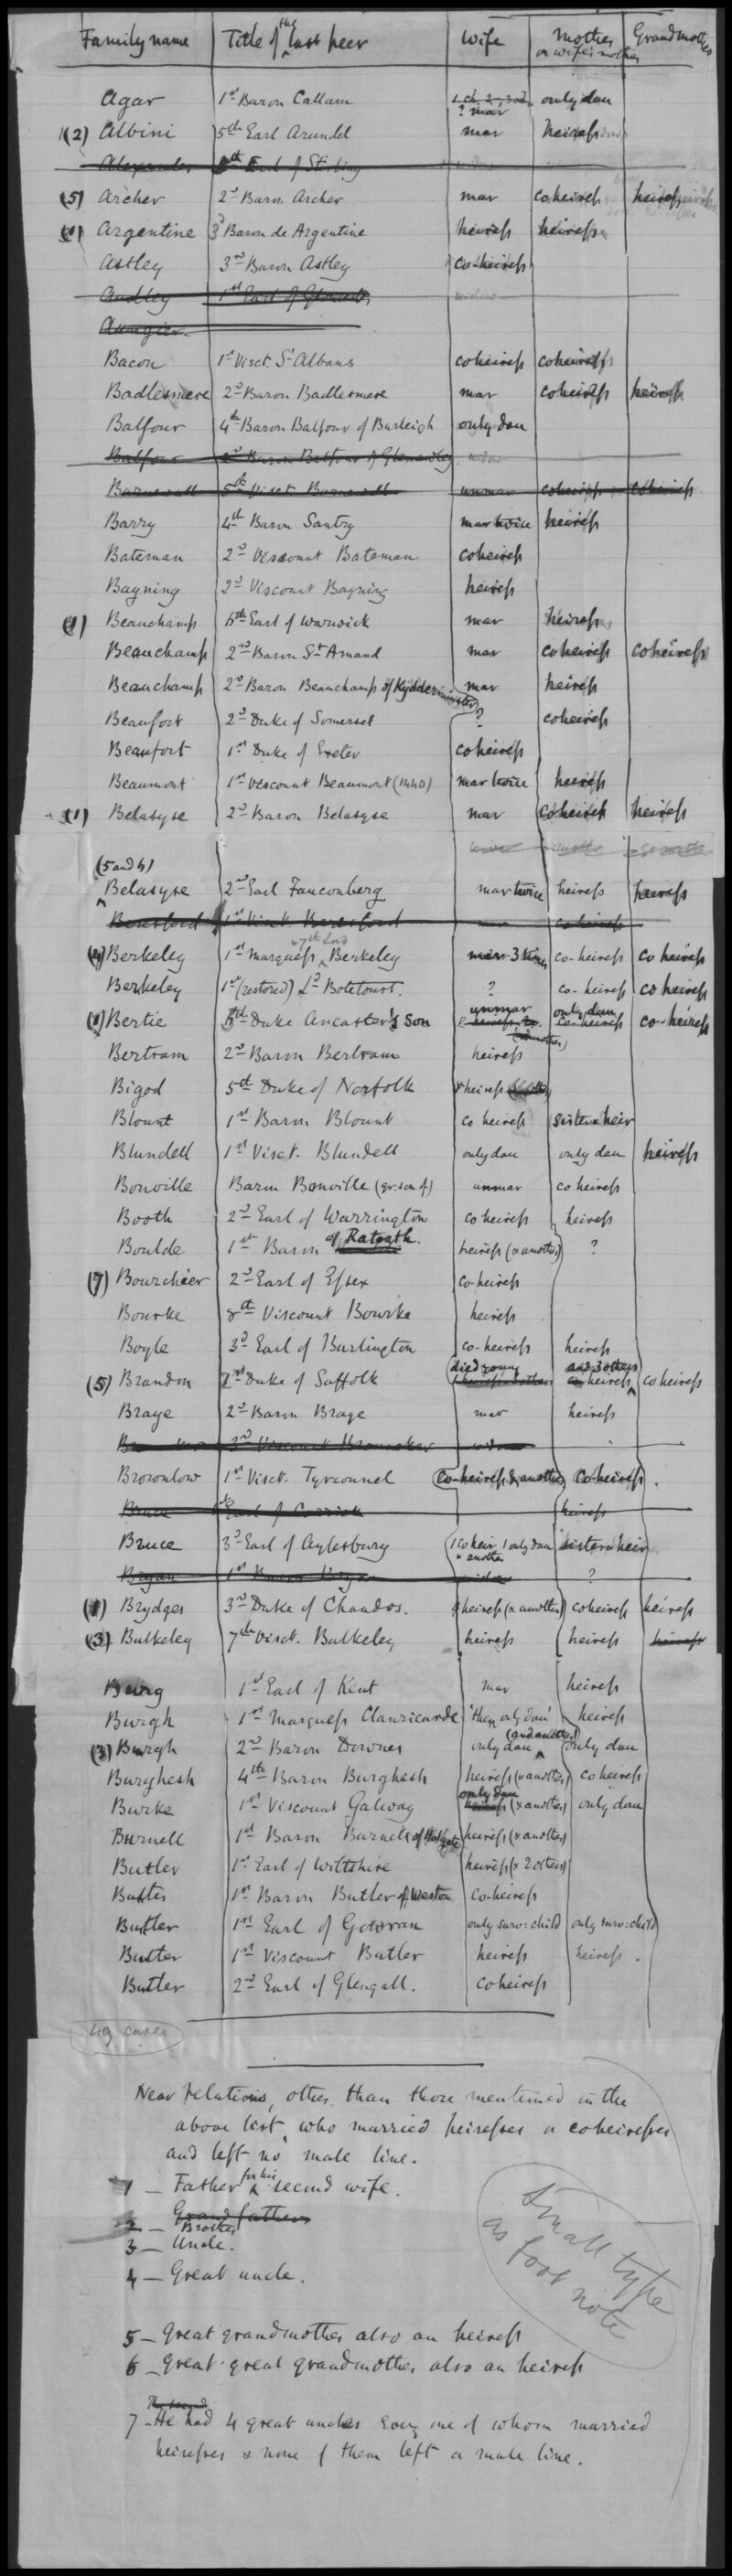 Family name Title of the last peer Wife Mother or wife's mother Grandmother
Agar 1st Baron Callam ? mar only dau
(2) Albini 5th Earl Arundel mar heiress
Alexander Earl of Stirling
(5) Archer 2d Baron Archer mar coheiress heiress
(1) Argentine 3d Baron de Argentine heiress heiress
Astley 3rd Baron Astley co-heiress
Audley 1st Earl of Gloucester widow
Aungier
Bacon 1st Visct. St Albans coheiress coheiress
Badlesmere 2d Baron Badlesmere mar coheiress heiress
Balfour 4th Baron Balfour of Burleigh only dau
Balfour 2d Baron Balfour of Glenawley widow
Barnewall 5th Visct Barnewall unmar coheiress coheiress
Barry 4th Baron Santry mar twice heiress
Bateman 2d Viscount Bateman coheiress
Bayning 2d Viscount Bayning heiress
(1) Beauchamp 6th Earl of Warwick mar heiress
Beauchamp 2nd Baron St Amand mar coheiress coheiress
Beauchamp 2d Baron Beauchamp of Kydderminster mar heiress
Beaufort 2d Duke of Somerset ? coheiress
Beaufort 1st Duke of Exeter coheiress
Beaumont 1st Viscount Beaumont (1440) mar twice heiress
(1) Belasyse 2d Baron Belasyse mar coheiress heiress
(5 and 6)
Belasyse 2nd Earl Fauconberg mar twice heiress heiress
Beresford 1st Visct. Beresford mar coheiress
(4) Berkeley 1st Marquess & 7th Lord Berkeley mar 3 times co-heiress co heiress
Berkeley 1st (restored) Ld Botetourt. ? co-heiress co heiress
(1) Bertie 5th Duke Ancaster's Son unmar only dau co-heiress co-heiress
Bertram 2d Baron Bertram heiress
Bigod 5th Duke of Norfolk heiress
Blount 1st Baron Blount co heiress sister & heir
Blundell 1st Visct. Blundell only dau only dau heiress
Bonville Baron Bonville (gr. son of) unmar co heiress
Booth 2d Earl of Warrington co heiress heiress
Boulde 1st Baron of Ratoath. heiress (& another) ?
(7) Bourchier 2d Earl of Essex co-heiress
Bourke 8th Viscount Bourke heiress
Boyle 3d Earl of Burlington co-heiress heiress
(5) Brandon 2nd Duke of Suffolk died young heiress and 3 others co heiress
Braye 2d Baron Braye mar heiress
3d Viscount Brouncker widow
Brownlow 1st Visct. Tyrconnel (co-heiress & another) coheiress.
Bruce Earl of Carrick heiress
Bruce 3d Earl of Aylesbury (1 coheir 1 only dau & another sister & heir
Bryan 1st Baron Bryan widow ?
(1) Brydges 3d Duke of Chandos. heiress (& another) coheiress heiress
(3) Bulkeley 7th Visct. Bulkeley heiress heiress heiress
Burg 1st Earl of Kent mar heiress
Burgh 1st Marquess Clanricarde 'then only dau' heiress
(3) Burgh 2d Baron Downes only dau (and another) only dau
Burghesh 4th Baron Burghesh heiress (& another) coheiress
Burke 1st Viscount Galway only dau heiress (& another) only dau
Burnell 1st Baron Burnell of Holgate heiress (& another)
Butler 1st Earl of Wiltshire heiress (& 2 others)
Butler 1st Baron Butler of Weston co-heiress
Butler 1st Earl of Gowran only surv: child only surv: child
Butler 1st Viscount Butler heiress heiress.
Butler 2d Earl of Glengall. coheiress
49 cases
Near relations, other than those mentioned in the
above list, who married heiresses or coheiresses
and left no male line.
1 — Father for his second wife.
2 — Grandfather Brother
3 — Uncle.
4 — Great uncle.
Small type
as foot note
5 — Great grandmother also an heiress
6 — Great great grandmother also an heiress
7 — He had 4 great uncles every one of whom married
heiresses & none of them left a male line.